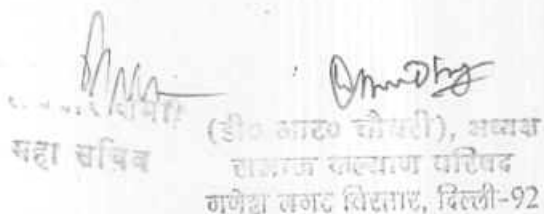 महा सचिव
(डी० आर० चौधरी), अध्यक्ष
समाज कल्याण परिषद
गणेश नगर विस्तार, दिल्ली-92